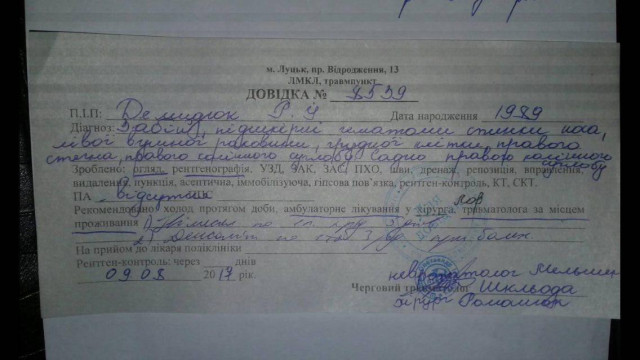 м. Луцьк, пр. Відродження, 13
ЛМКЛ, травмпункт
ДОВІДКА № 8539
П.І.П: Демидюк Р. У Дата народження 1989
Діагноз: Забої, підшкірні гематоми спинки носа,
лівої вушної раковини, грудної клітки, правого
стегна, правого колінного суглобу. Садно правого колінного
суглобу
Зроблено: огляд, рентгенографія, УЗД, ЗАК, ЗАС, ПХО, шви, дренеж, репозиція, вправлення,
видалення, пункція, асептична, іммобілізуюча, гіпсова пов'язка, рентген-контроль, КТ, СКТ.
ПА відсутня
Рекомендовано холод протягом доби, амбулаторне лікування у хірурга, травматолога за місцем
лор
проживання 1) по 3
2) по 3 при болях
На прийом до лікаря поліклініки
Рентген-контроль: через днів
09.08 2017 рік.
невропатолог
Черговий травматолог Шкльода
хірург